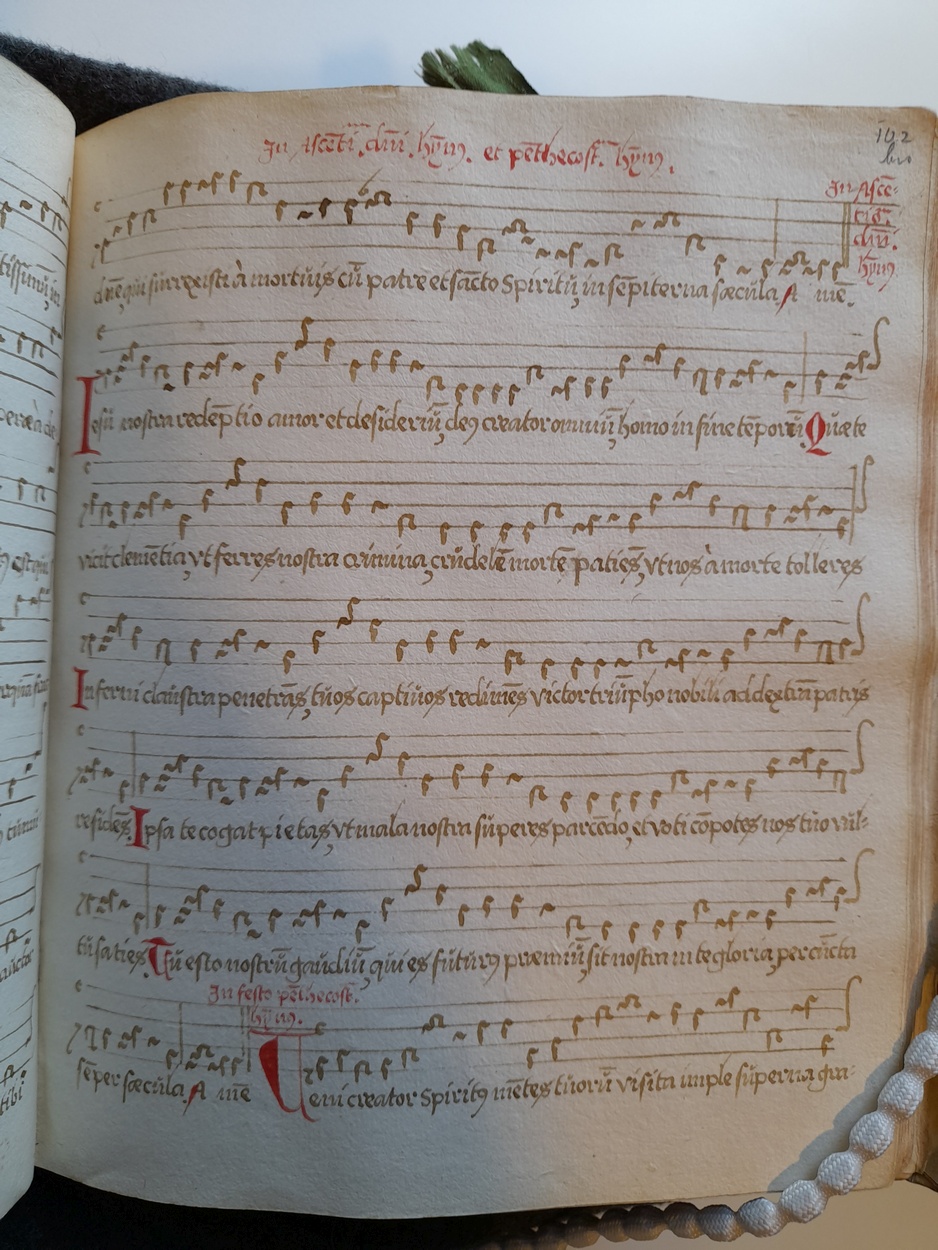 In Ascēti. dn̄i. hȳm9. et pēthecost. hȳm9.
102
bis
In Ascē-
tiē.
dn̄i.
hȳm9.
dn̄e, qui surrexisti à mortuis cū patre et sācto Spiritu, in sēpiterna sæcula. A mē.
Iesu nostra redēptio amor et desideriū, de9 creator omniū, homo in fine tēporū. Quæ te
vicit clemētia, vt ferres nostra crimina, crudelē mortē patiēs, vt nos à morte tolleres
Inferni claustra penetrās, tuos captiuos redimēs victor triūpho nobili ad dextrā patris
residēs. Ipsa te cogat pietas, vt mala nostra superes parcēdo, et voti cōpotes nos tuo vul-
tu saties. Tu esto nostrū gaudiū, qui es futur9 præmiū, sit nostra in te gloria, per cūcta
In festo pēthecost.
hȳm9.
sēper sæcula. A mē Veni creator Spirit9 mētes tuorū visita imple superna gra-